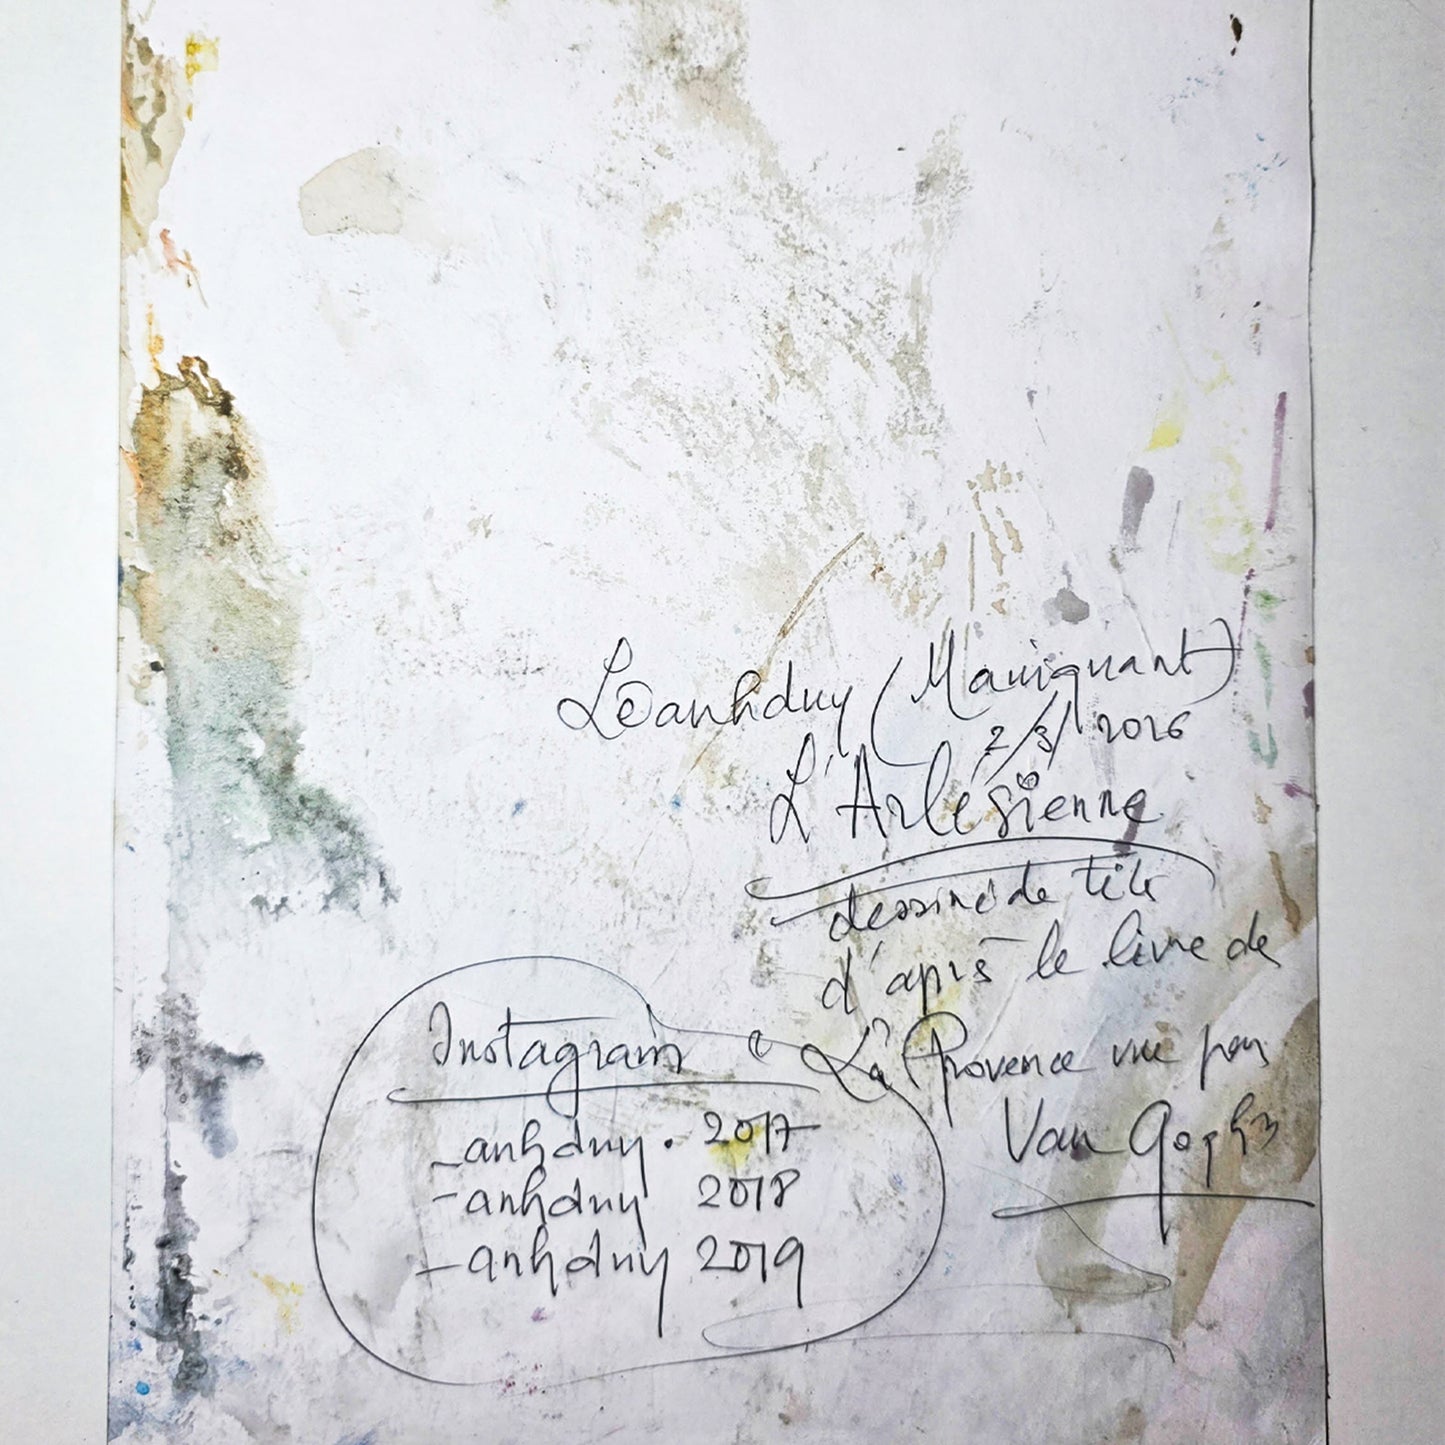 Léanhduy (Mauiquant)
2/3/2026
L'Arlésienne
dessiné de tête
d'après le livre de
"La Provence vue par
Van Gogh"
Instagram
- anhduy. 2017
- anhduy 2018
- anhduy 2019